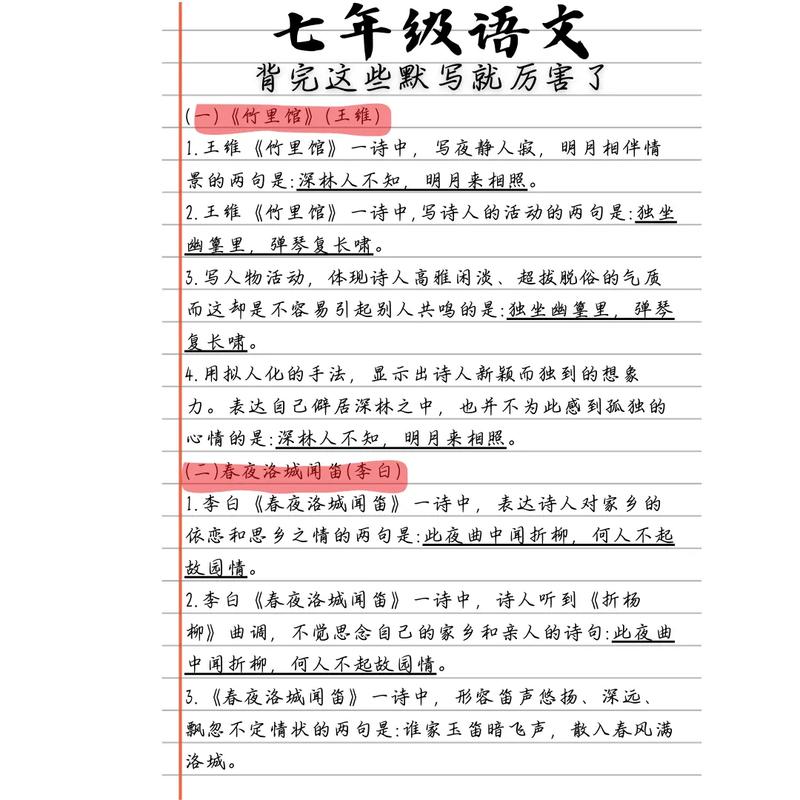 七年级语文
背完这些默写就厉害了
(一)《竹里馆》(王维)
1.王维《竹里馆》一诗中，写夜静人寂，明月相伴情
景的两句是:深林人不知，明月来相照。
2.王维《竹里馆》一诗中,写诗人的活动的两句是:独坐
幽篁里，弹琴复长啸。
3.写人物活动，体现诗人高雅闲淡、超拔脱俗的气质
而这却是不容易引起别人共鸣的是:独坐幽篁里，弹琴
复长啸。
4.用拟人化的手法，显示出诗人新颖而独到的想象
力。表达自己僻居深林之中，也并不为此感到孤独的
心情的是:深林人不知，明月来相照。
(二)春夜洛城闻笛(李白)
1.李白《春夜洛城闻笛》一诗中，表达诗人对家乡的
依恋和思乡之情的两句是:此夜曲中闻折柳，何人不起
故园情。
2.李白《春夜洛城闻笛》一诗中，诗人听到《折杨
柳》曲调，不觉思念自己的家乡和亲人的诗句:此夜曲
中闻折柳，何人不起故园情。
3.《春夜洛城闻笛》一诗中，形容笛声悠扬、深远、
飘忽不定情状的两句是:谁家玉笛暗飞声，散入春风满
洛城。